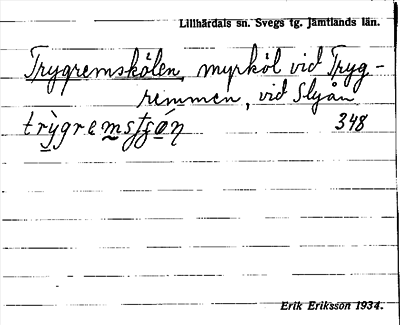 Lillhärdals sn. Svegs tg. Jämtlands län.
Trygremskölen, myrköl vid Tryg-
remmen, vid Slyån
348
Erik Eriksson 1934.